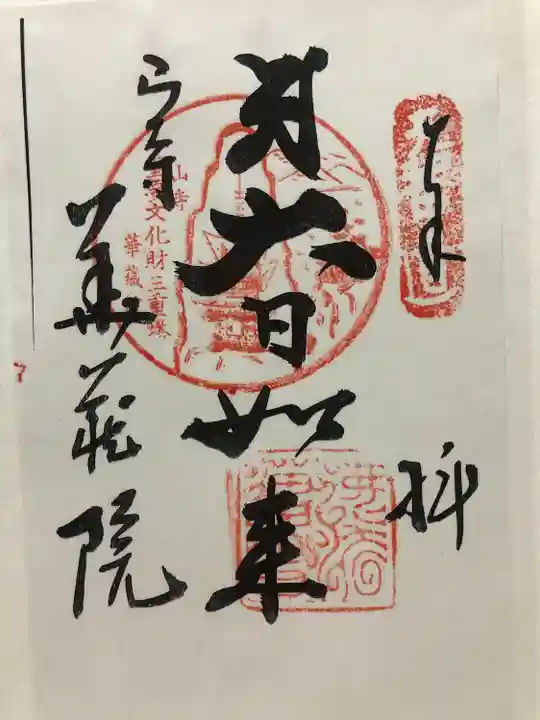 奉拝
大日如来
山寺
文化財三重塔
華蔵
山寺 華蔵院